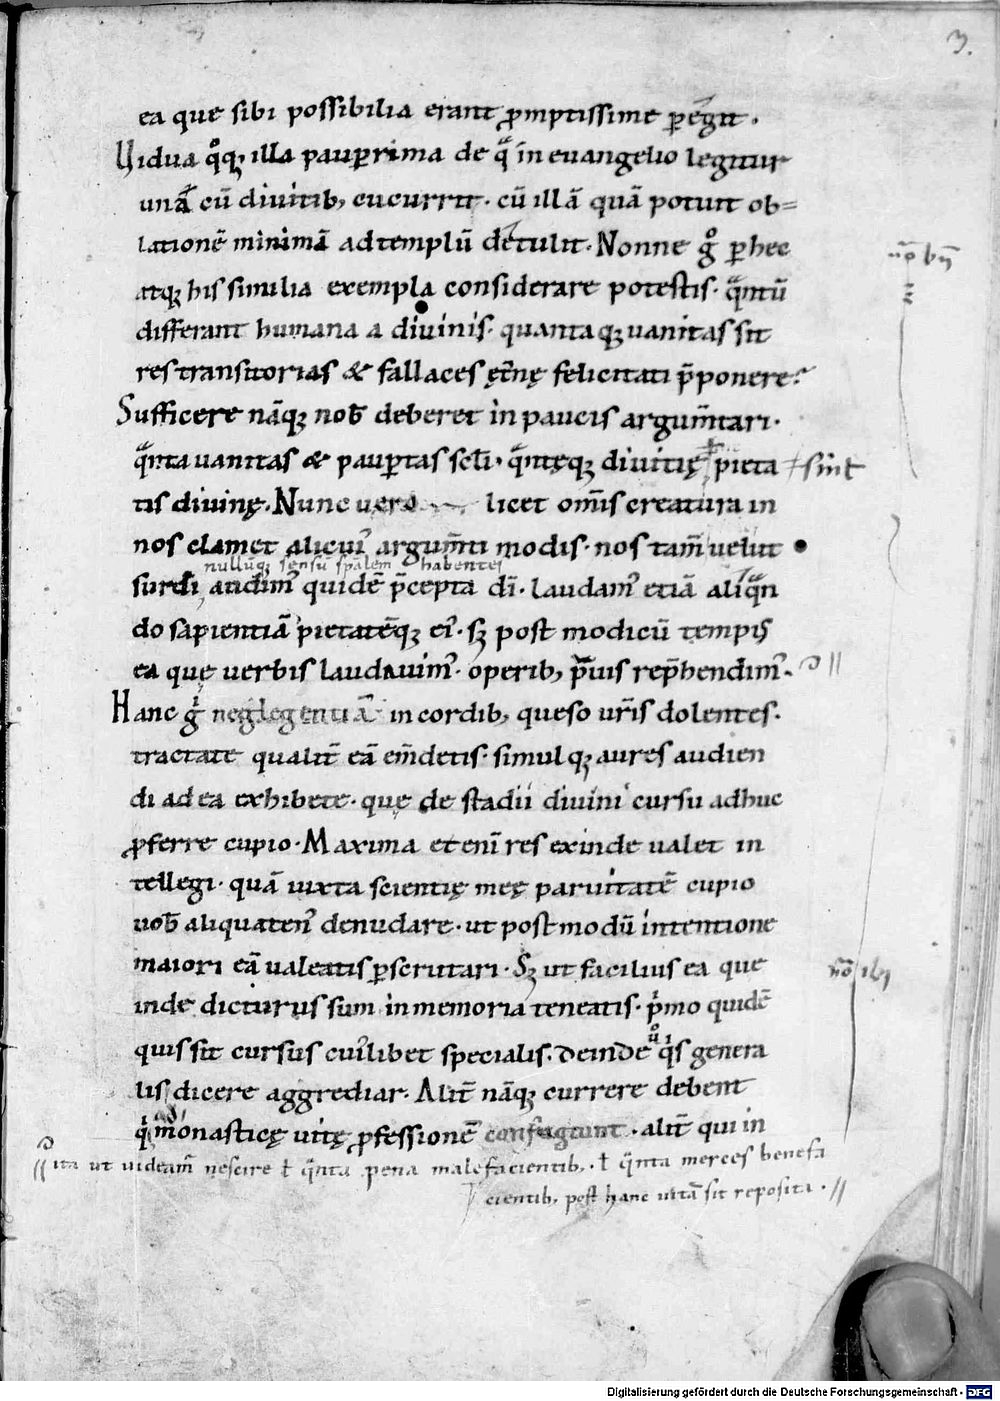 3.
ea que sibi possibilia erant ꝓmptissime ꝑegit.
Uidua q̊q; illa paupꝑrima de qͣ in euangelio legitur
unā cū diuitib; cucurrit. cū illā quā potuit ob=
lationē minimā ad templū detulit. Nonne g̊ ꝑ hec
atq; his similia exempla considerare potestis. qͣntū
differant humana a diuinis. quanta q; uanitas sit
res transitorias & fallaces ęt̄nę felicitati p̄ponere?
Sufficere nāq; nob̄ deberet in paucis argum̄tari.
qͣnta uanitas & pauꝑtas sc̄li. qͣntęq; diuitię pieta
sint
tis diuinę. Nunc uero licet om̄is creatura in
nos clamet alicui᾿ argum̄ti modis. nos tam̄ uelut
nullūq; sensū sp̄alem habentes
surdi, audim᾿ quidē p̄cepta dī. Laudam᾿ etiā aliqͣn
do sapientiā pietatēq; ei᾿. sꝫ post modicū tempis
ea quę uerbis laudauim᾿. operib; p̄uis rep̄hendim᾿.
Hanc gͥ neglegentiā in cordib; queso ur̄is dolentes.
tractate qualit̄ eā em̄detis. simulq; aures audien
di ad ea exhibete. quę de stadii diuini cursu adhuc
ꝓferre cupio. Maxima etenī res exinde ualet in
tellegi. quā iuxta scientię meę paruitatē cupio
uob̄ aliquaten᾿ denudare. ut postmodū intentione
maiori eā ualeatis ꝑscrutari. Sꝫ ut facilius ea que
inde dicturus sum in memoria teneatis. pͥmo quidē
quis sit cursus cui᾿libet specialis. deinde ů qͥs genera
lis dicere aggrediar. Alit̄ nāq; currere debent
qͥ monasticę uitę ꝓfessionē confugiunt. alit̄ qui in
ita ut uideam̄ nescire ł qͣnta pena malefacientib;. ł qͣnta merces benefa
cientib; post hanc uitā sit reposita.
Digitalisierung gefördert durch die Deutsche Forschungsgemeinschaft - DFG